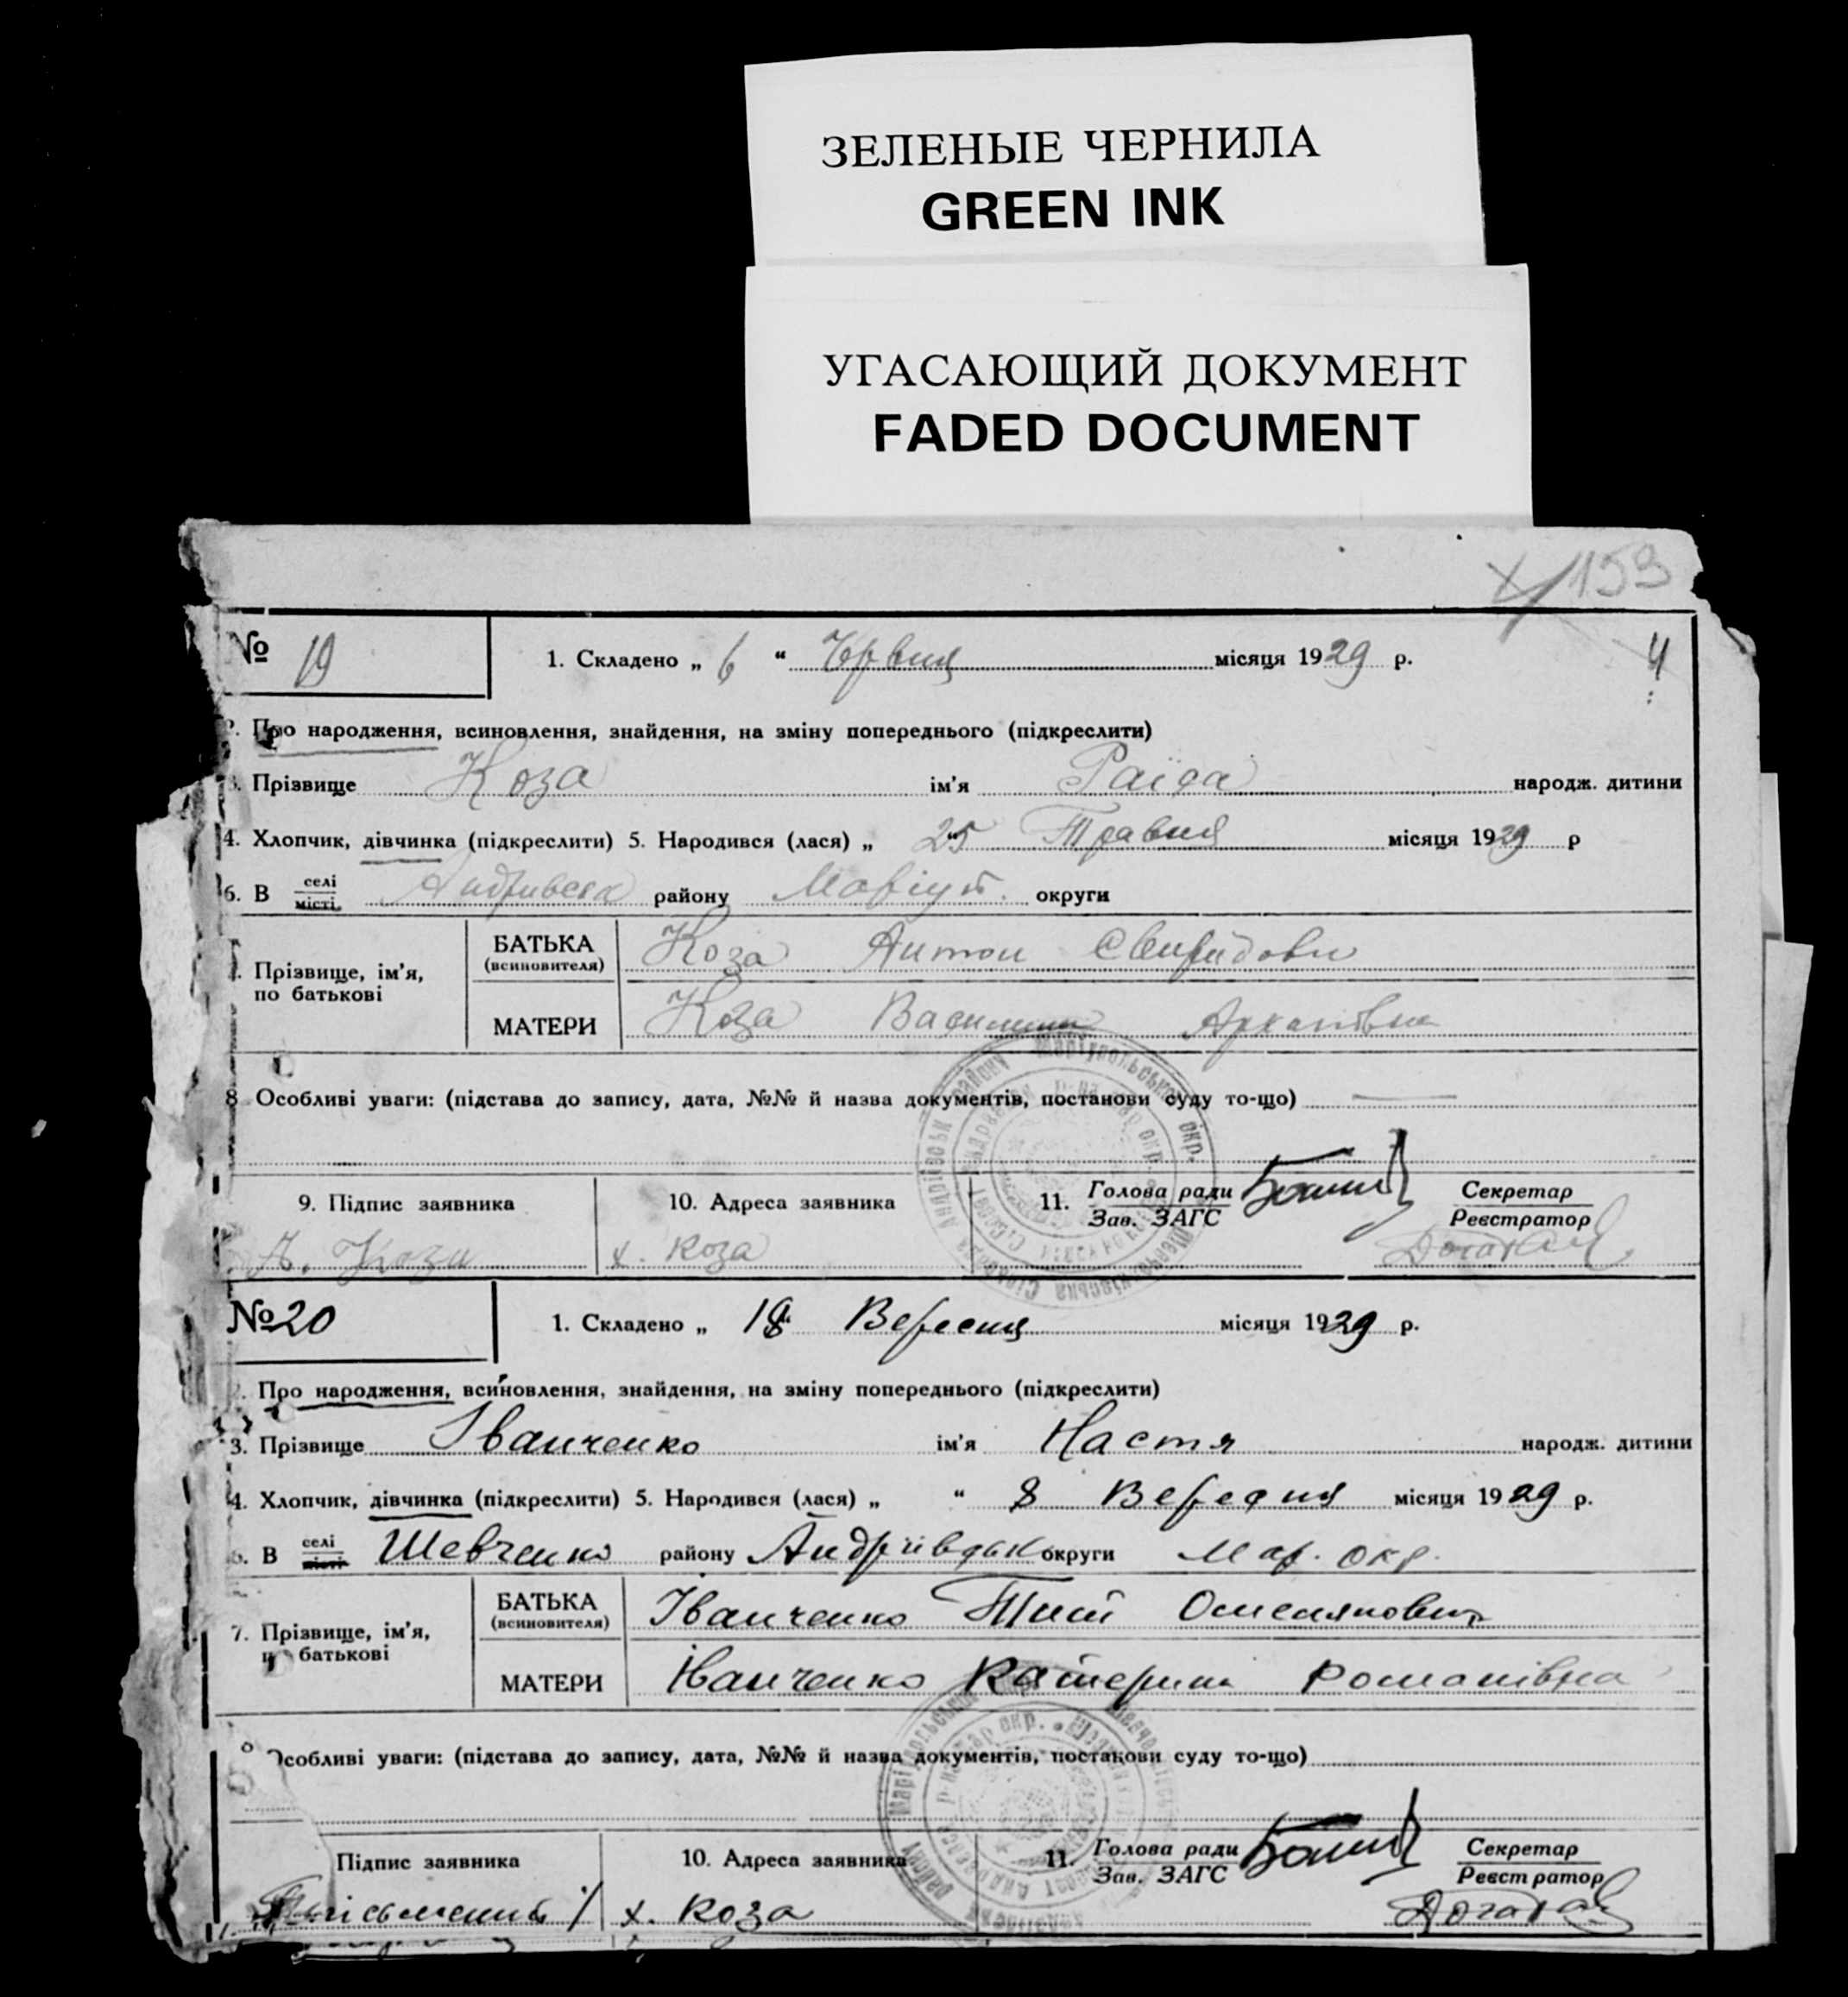 ЗЕЛЕНЫЕ ЧЕРНИЛА
GREEN INK
УГАСАЮЩИЙ ДОКУМЕНТ
FADED DOCUMENT
153
№ 19 1. Складено „ 6 “ Чрвня місяця 1929 р. 4
Про народження, всиновлення, знайдення, на зміну попереднього (підкреслити)
3. Прізвище Коза ім'я Раїса народж. дитини
4. Хлопчик, дівчинка (підкреслити) 5. Народився (лася) „ 25 “ Травня місяця 1929 р
6. В селі місті Андривска району Маріуп. округи
Прізвище, ім'я, по батькові БАТЬКА (всиновителя) Коза Антон Свиридови
МАТЕРИ Коза
8 Особливі уваги: (підстава до запису, дата, №№ й назва документів, постанови суду то-що)
9. Підпис заявника 10. Адреса заявника 11. Голова ради Зав. ЗАГС Секретар Реєстратор
А. Коза х. Коза
№ 20 1. Складено „ 18 “ Вересня місяця 1929 р.
Про народження, всиновлення, знайдення, на зміну попереднього (підкреслити)
3. Прізвище Іванченко ім'я Настя народж. дитини
4. Хлопчик, дівчинка (підкреслити) 5. Народився (лася) „ “ 8 Вересня місяця 1929 р.
6. В селі місті Шевченко району Андріівськ округи Мар. окр.
7. Прізвище, ім'я, по батькові БАТЬКА (всиновителя) Іванченко Тит Омелянович
МАТЕРИ Іванченко Катерина Романівна
Особливі уваги: (підстава до запису, дата, №№ й назва документів, постанови суду то-що)
Підпис заявника 10. Адреса заявника 11. Голова ради Зав. ЗАГС Секретар Реєстратор
х. Коза